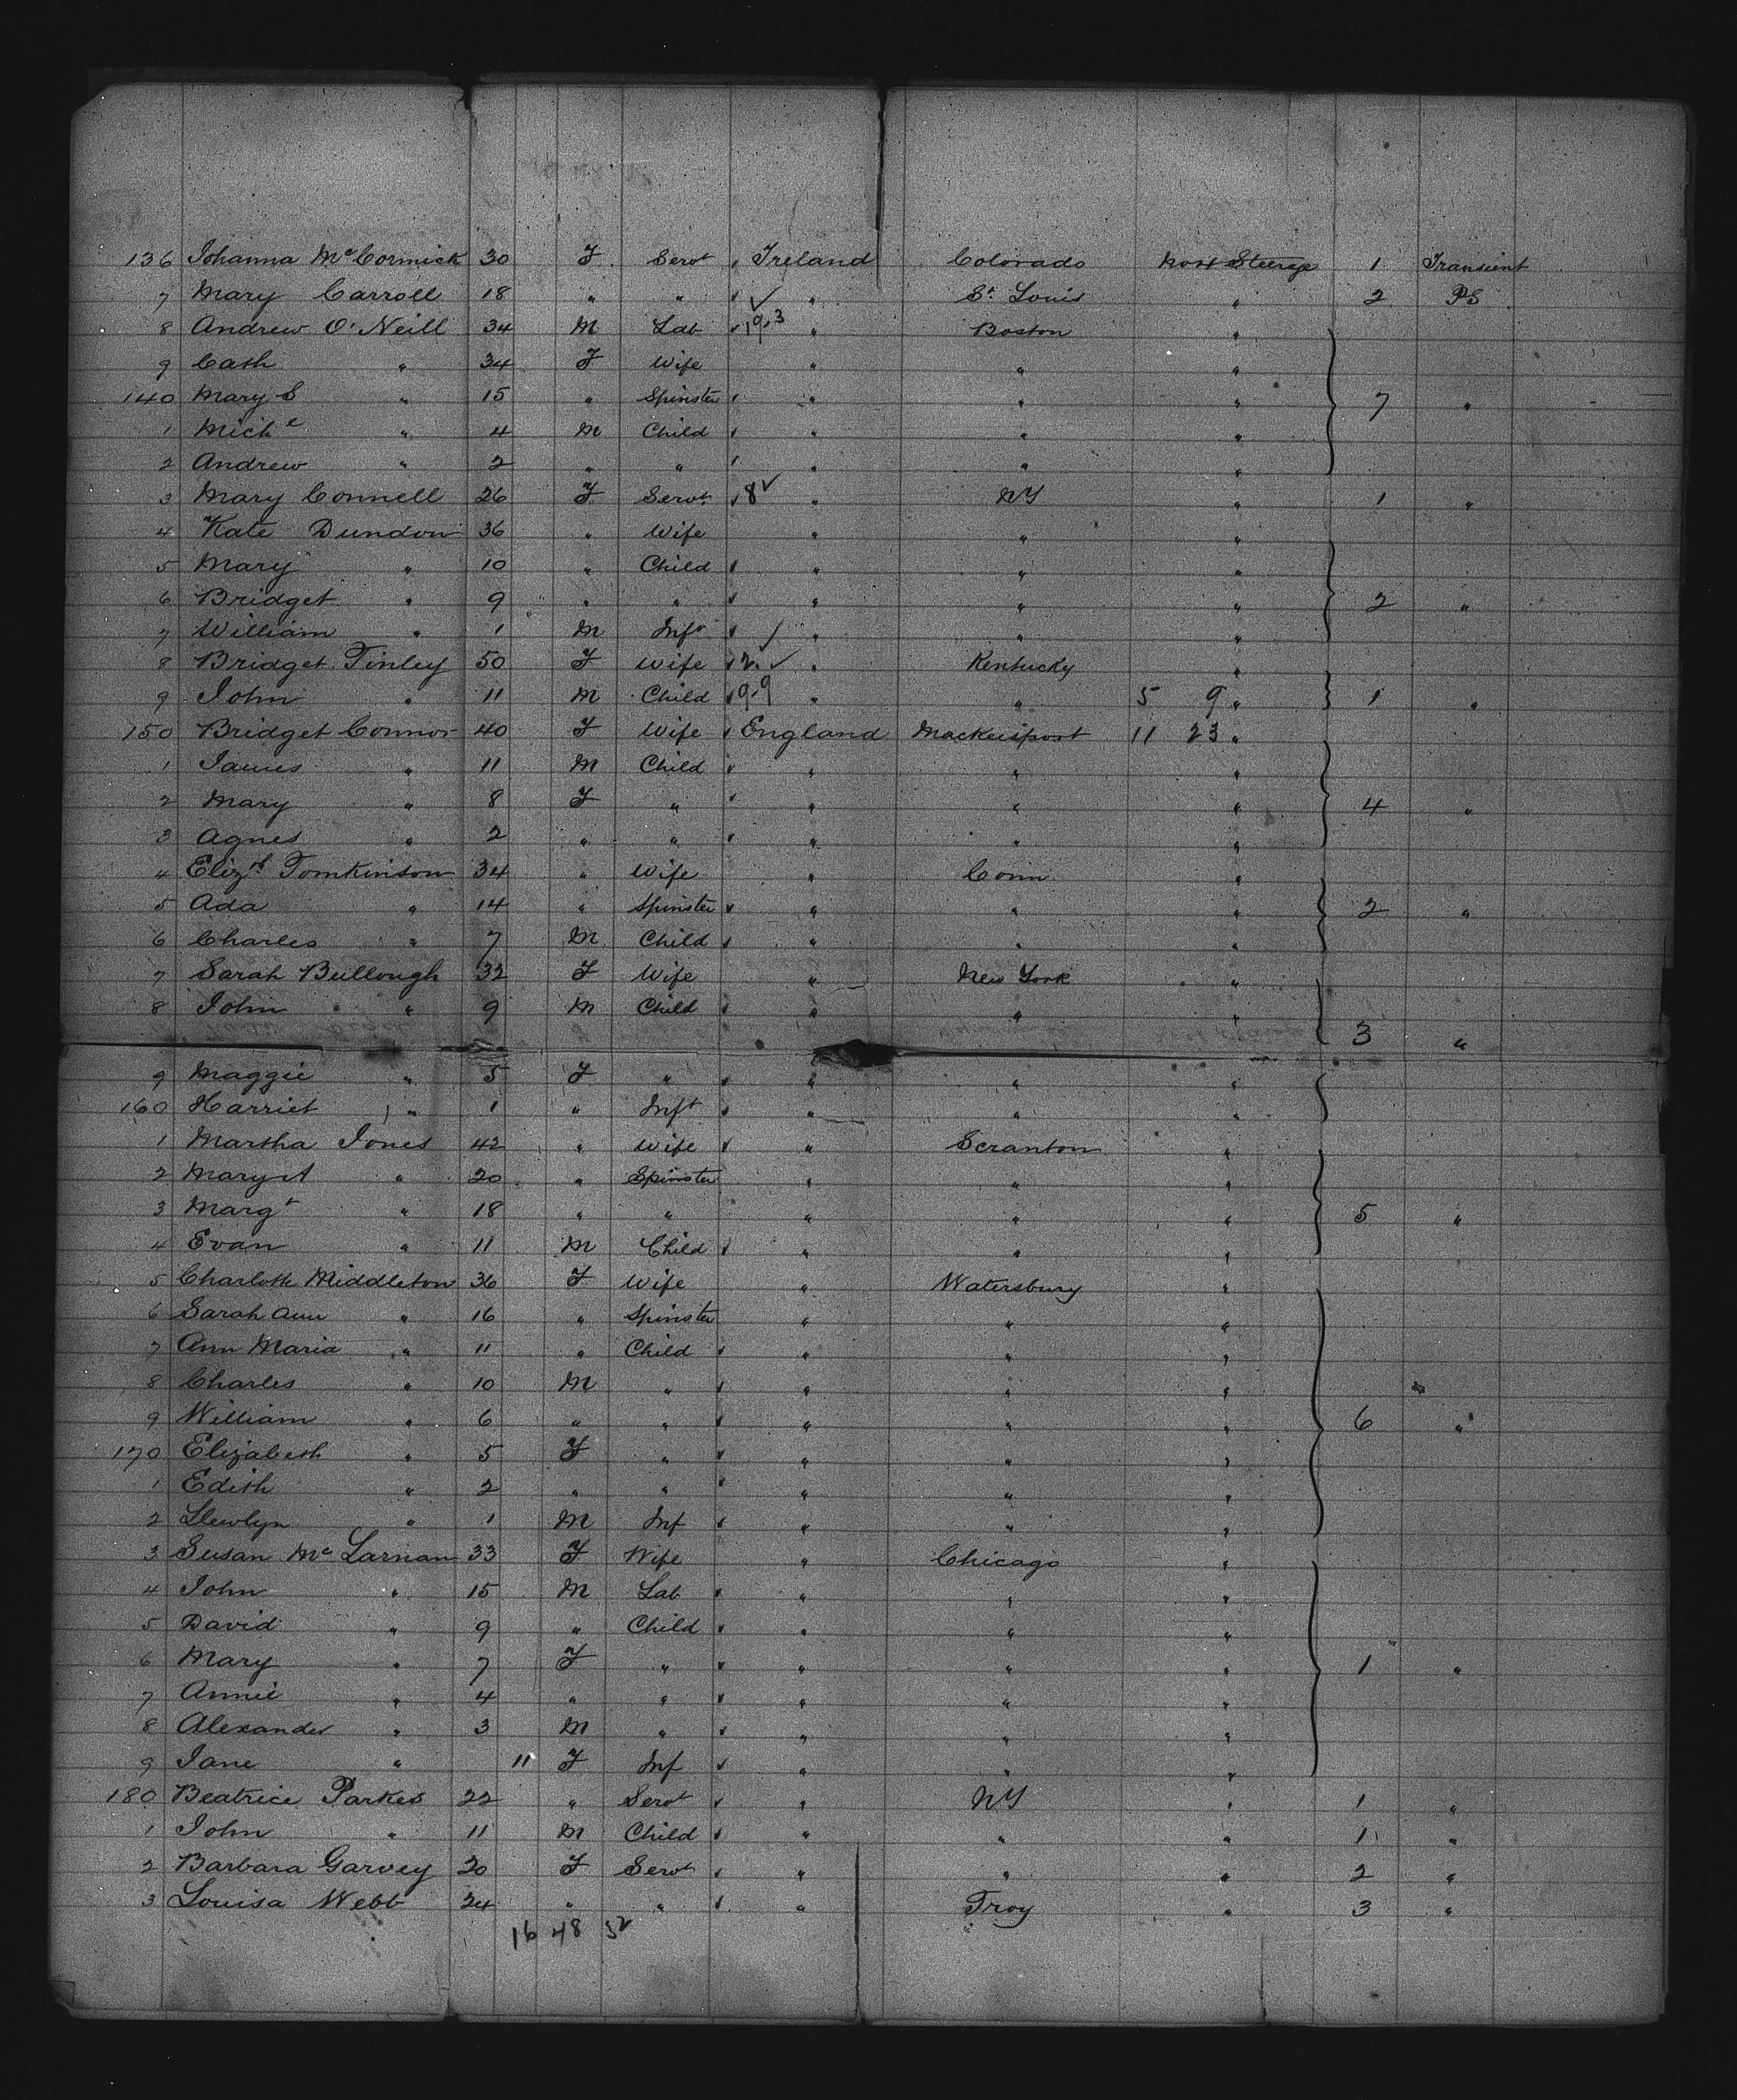 136 Johanna McCormick 30 F Servt Ireland Colorado Steerage 1 Transient
7 Mary Carroll 18 " " " St. Louis " 2 PS
8 Andrew O'Neill 34 M Lab " Boston "
9 Cath " 34 F Wife " " "
140 Mary S " 15 " Spinster " " " 7 "
1 Michl " 4 M Child " " "
2 Andrew " 2 " " " " "
3 Mary Connell 26 F Servt 8 " NY " 1 "
4 Kate Dundon 36 " Wife " " "
5 Mary " 10 " Child " " "
6 Bridget " 9 " " " " " 2 "
7 William " 1 M Inft " " "
8 Bridget Tinley 50 F Wife 2 " Kentucky "
9 John " 11 M Child " " 5 9 " 1 "
150 Bridget Connor 40 F Wife England Mackeisport 11 23 "
1 James " 11 M Child " " "
2 Mary " 8 F " " " " 4 "
3 Agnes " 2 " " " " "
4 Elizth Tomkinson 34 " Wife " Conn "
5 Ada " 14 " Spinster " " " 2 "
6 Charles " 7 M Child " " "
7 Sarah Bullough 32 F Wife " New York "
8 John " 9 M Child " " "
3 "
9 Maggie " 5 F " " " "
160 Harriet " 1 " Inft " " "
1 Martha Jones 42 " Wife " Scranton "
2 Mary A " 20 " Spinster " " "
3 Margt " 18 " " " " " 5 "
4 Evan " 11 M Child " " "
5 Charlotte Middleton 36 F Wife " Watersbury "
6 Sarah Ann " 16 " Spinster " " "
7 Ann Maria " 11 " Child " " "
8 Charles " 10 M " " " "
9 William " 6 " " " " " 6 "
170 Elizabeth " 5 F " " " "
1 Edith " 2 " " " " "
2 Llewlyn " 1 M Inf " " "
3 Susan McLarnan 33 F Wife " Chicago "
4 John " 15 M Lab " " "
5 David " 9 " Child " " "
6 Mary " 7 F " " " " 1 "
7 Annie " 4 " " " " "
8 Alexander " 3 M " " " "
9 Jane " 11 F Inf " " "
180 Beatrice Parkes 22 " Servt " NY " 1 "
1 John " 11 M Child " " " 1 "
2 Barbara Garvey 20 F Servt " " " 2 "
3 Louisa Webb 24 " " " Troy " 3 "
16 48 52